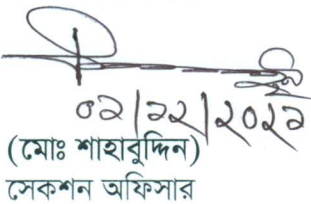 ০১/১২/২০২১
(মোঃ শাহাবুদ্দিন)
সেকশন অফিসার